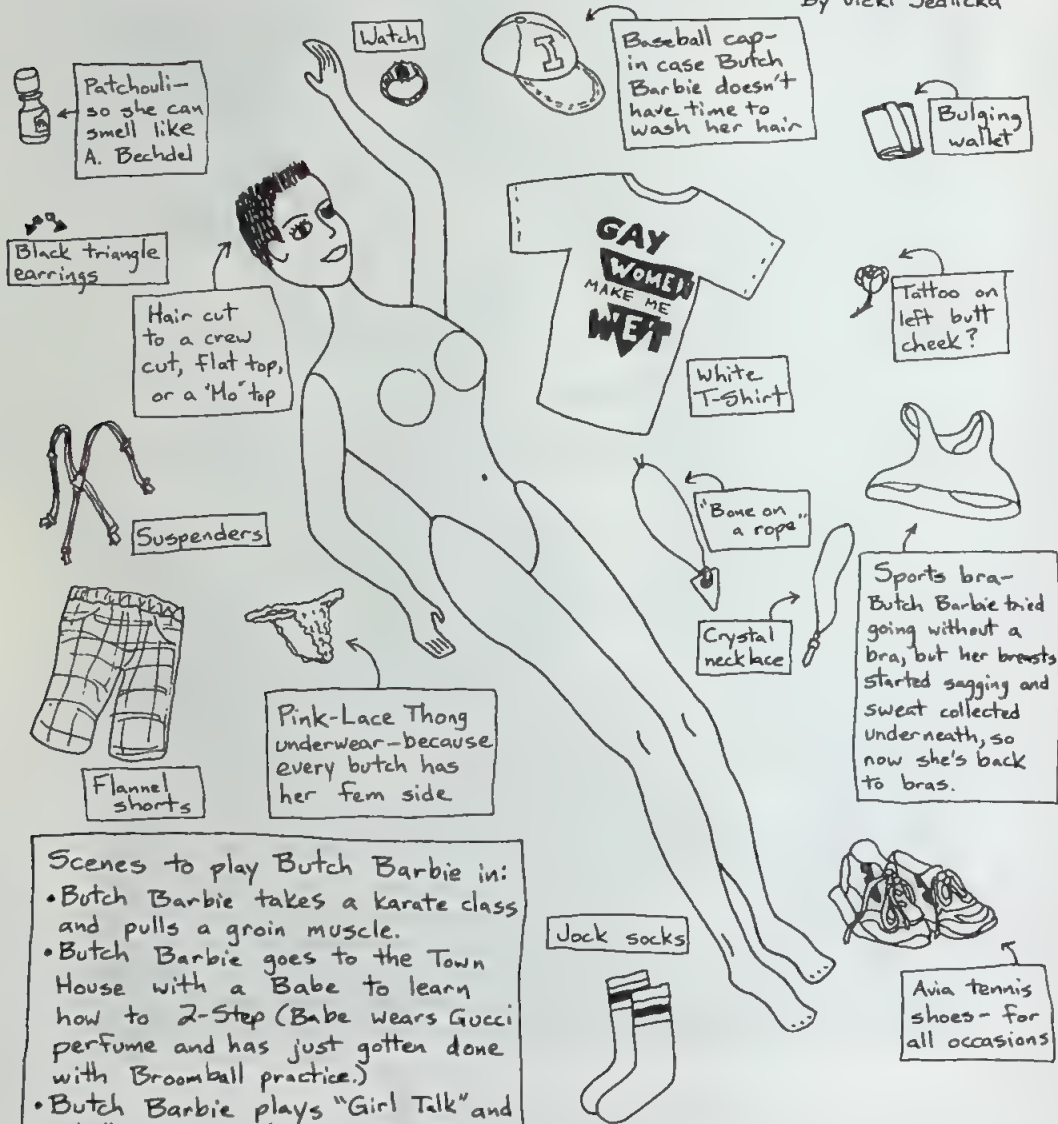 By Vicki Jedlicka
Watch
Patchouli-
so she can
smell like
A. Bechdel
Baseball cap-
in case Butch
Barbie doesn't
have time to
wash her hair
I
Bulging
wallet
Black triangle
earrings
Hair cut
to a crew
cut, flat top,
or a "Mo" top
GAY
WOMEN
MAKE ME
WET
White
T-Shirt
Tattoo on
left butt
cheek?
Suspenders
"Bone on
a rope"
Crystal
necklace
Sports bra-
Butch Barbie tried
going without a
bra, but her breasts
started sagging and
sweat collected
underneath, so
now she's back
to bras.
Flannel
shorts
Pink-Lace Thong
underwear-because
every butch has
her fem side
Scenes to play Butch Barbie in:
• Butch Barbie takes a karate class
and pulls a groin muscle.
• Butch Barbie goes to the Town
House with a Babe to learn
how to 2-Step (Babe wears Gucci
perfume and has just gotten done
with Broomball practice.)
• Butch Barbie plays "Girl Talk" and
Jock socks
Avia tennis
shoes- for
all occasions